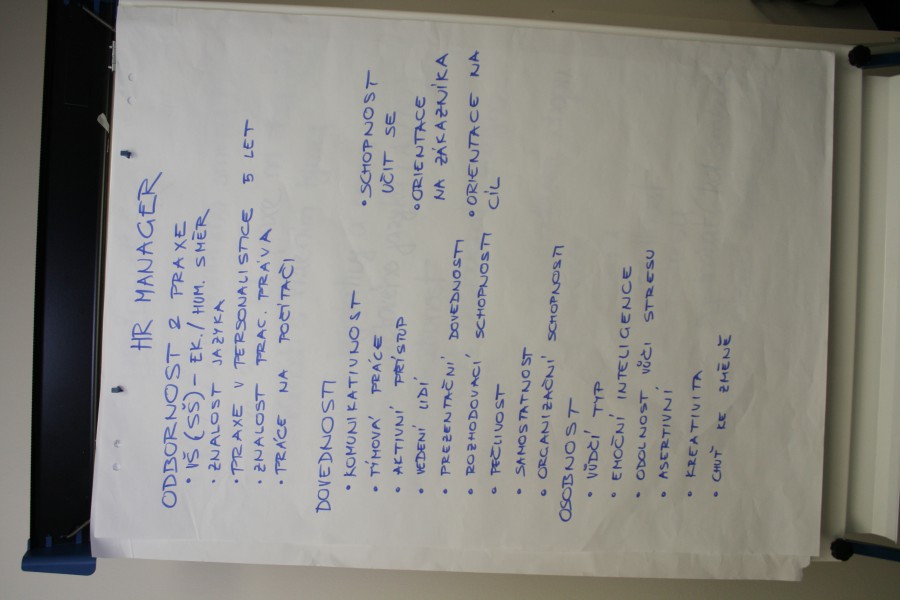 HR MANAGER
ODBORNOST Z PRAXE
• VŠ (SŠ) - EK. / HUM. SMĚR
• ZNALOST JAZYKA
• PRAXE V PERSONALISTICE 5 LET
• ZNALOST PRAC. PRÁVA
• PRÁCE NA POČÍTAČI
DOVEDNOSTI
• KOMUNIKATIVNOST
• TÍMOVÁ PRÁCE
• AKTIVNÍ PŘÍSTUP
• VEDENÍ LIDÍ
• PREZENTAČNÍ DOVEDNOSTI
• ROZHODOVACÍ SCHOPNOSTI
• PEČLIVOST
• SAMOSTATNOST
• ORGANIZAČNÍ SCHOPNOSTI
• SCHOPNOST
UČIT SE
• ORIENTACE
NA ZÁKAZNÍKA
• ORIENTACE NA
CÍL
OSOBNOST
• VŮDČÍ TYP
• EMOČNÍ INTELIGENCE
• ODOLNOST VŮČI STRESU
• ASERTIVNÍ
• KREATIVITA
• CHUŤ KE ZMĚNĚ